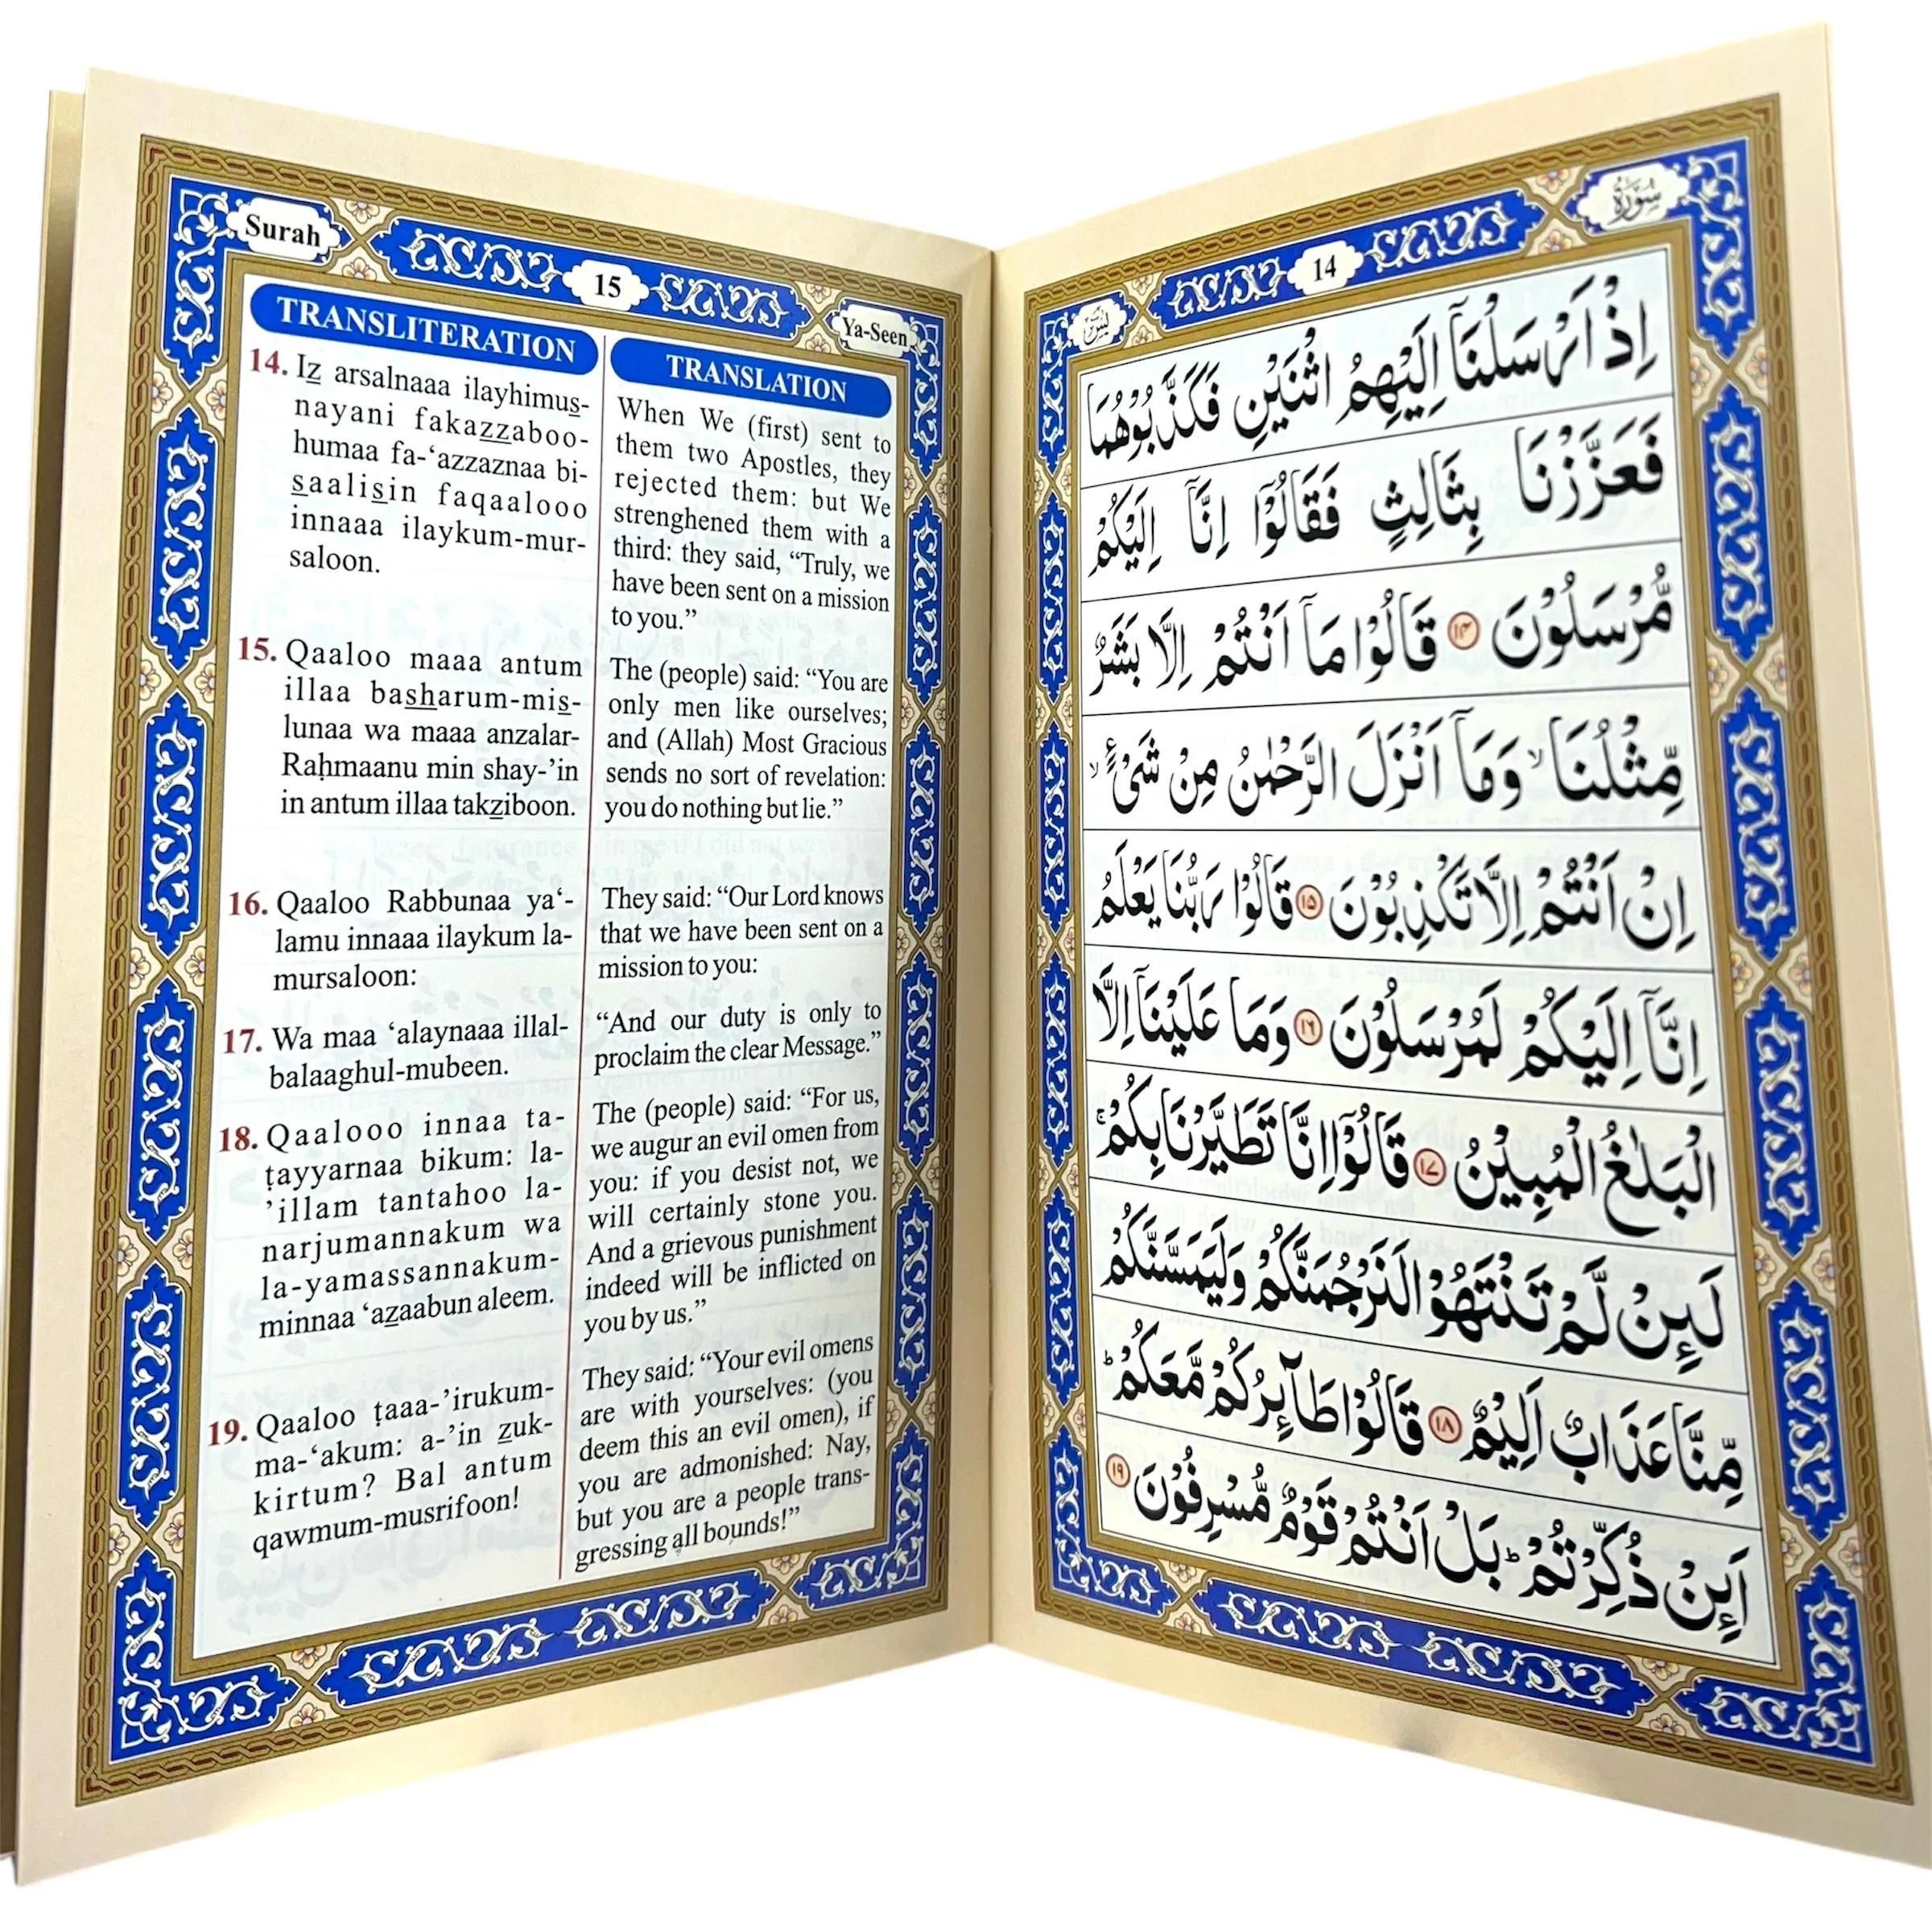 Surah
15
Ya-Seen
TRANSLITERATION
14. Iz arsalnaaa ilayhimus-
nayani fakazzaboo-
humaa fa-‘azzaznaa bi-
saalisin faqaalooo
innaaa ilaykum-mur-
saloon.
15. Qaaloo maaa antum
illaa basharum-mis-
lunaa wa maaa anzalar-
Raḥmaanu min shay-’in
in antum illaa takziboon.
16. Qaaloo Rabbunaa ya‘-
lamu innaaa ilaykum la-
mursaloon:
17. Wa maa ‘alaynaaa illal-
balaaghul-mubeen.
18. Qaalooo innaa ta-
ṭayyarnaa bikum: la-
’illam tantahoo la-
narjumannakum wa
la-yamassannakum-
minnaa ‘azaabun aleem.
19. Qaaloo ṭaaa-’irukum-
ma-‘akum: a-’in zuk-
kirtum? Bal antum
qawmum-musrifoon!
TRANSLATION
When We (first) sent to
them two Apostles, they
rejected them: but We
strenghened them with a
third: they said, “Truly, we
have been sent on a mission
to you.”
The (people) said: “You are
only men like ourselves;
and (Allah) Most Gracious
sends no sort of revelation:
you do nothing but lie.”
They said: “Our Lord knows
that we have been sent on a
mission to you:
“And our duty is only to
proclaim the clear Message.”
The (people) said: “For us,
we augur an evil omen from
you: if you desist not, we
will certainly stone you.
And a grievous punishment
indeed will be inflicted on
you by us.”
They said: “Your evil omens
are with yourselves: (you
deem this an evil omen), if
you are admonished: Nay,
but you are a people trans-
gressing all bounds!”
سُوْرَةُ
14
يٰسٓ
اِذْ اَرْسَلْنَاۤ اِلَيْهِمُ اثْنَيْنِ فَكَذَّبُوْهُمَا
فَعَزَّزْنَا بِثَالِثٍ فَقَالُوْۤا اِنَّاۤ اِلَيْكُمْ
مُّرْسَلُوْنَ ۱۴ قَالُوْا مَاۤ اَنْتُمْ اِلَّا بَشَرٌ
مِّثْلُنَا ۙ وَمَاۤ اَنْزَلَ الرَّحْمٰنُ مِنْ شَىْءٍ ۙ
اِنْ اَنْتُمْ اِلَّا تَكْذِبُوْنَ ۱۵ قَالُوْا رَبُّنَا يَعْلَمُ
اِنَّاۤ اِلَيْكُمْ لَمُرْسَلُوْنَ ۱۶ وَمَا عَلَيْنَاۤ اِلَّا
الْبَلٰغُ الْمُبِيْنُ ۱۷ قَالُوْۤا اِنَّا تَطَيَّرْنَا بِكُمْ ۚ
لَىِٕنْ لَّمْ تَنْتَهُوْا لَنَرْجُمَنَّكُمْ وَلَيَمَسَّنَّكُمْ
مِّنَّا عَذَابٌ اَلِيْمٌ ۱۸ قَالُوْا طَاۤىِٕرُكُمْ مَّعَكُمْ ؕ
اَىِٕنْ ذُكِّرْتُمْ ؕ بَلْ اَنْتُمْ قَوْمٌ مُّسْرِفُوْنَ ۱۹